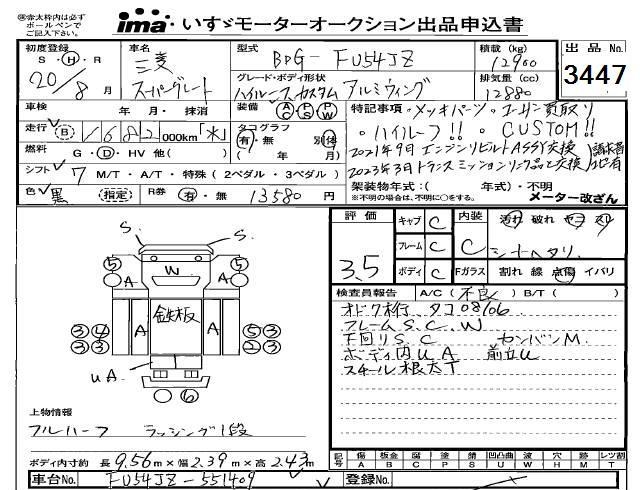 ㊟赤太枠内は必ず ima いすゞモーターオークション出品申込書
ボールペンで
ご記入下さい。
初度登録 車名 型式 BDG-FU54JZ 積載 (kg) 12900 出品No.
S・H・R 三菱 グレード・ボディ形状 排気量(cc) 3447
20/8月 スーパーグレート ハイルーフカスタム アルミウィング 12880
車検 年 月・抹消 装備 AC PS PW 特記事項・メッキパーツ・エーサン買取り
走行 (B) 1682 000km「水」 タコグラフ ・ハイルーフ!! ・CUSTOM!!
有・無 別体 2021年9月エンジンリビルトASSY交換
燃料 G・D・HV 他( ) ( 年 月) 2023年3月トランスミッションリンク品と交換
シフト 7 M/T・A/T・特殊(2ペダル・3ペダル) 架装物年式:( 年式)・不明
※不明の場合は、不明に○をする。 メーター改ざん
色 黒 (指定) R券 有・無 13580円
評価 キャブ C 内装 汚れ 破れ ヤニ スリ
3.5 フレーム C C シートヘタリ
ボディ C Fガラス 割れ 線 点傷 イバリ
検査員報告 A/C(不良) B/T( )
オドク桁、タコ08/06
フレームS.C.W
下回りS.C センバンM.
ボディ内UA 前立U
スチール根太T
S. S.
⑤ W ⑤
A A
③④ A 鉄板 A ⑤③
③③ ②③
UA
⑥
上物情報
フルハーフ ラッシング1段
ボディ内寸約 長9.56m×幅2.39m×高2.43m
記号 傷 板金 腐 塗 錆 凹凸曲 波 穴 跡 レツ割
A B C P S U W H M T
車台No. FU54JZ-551409 登録No.